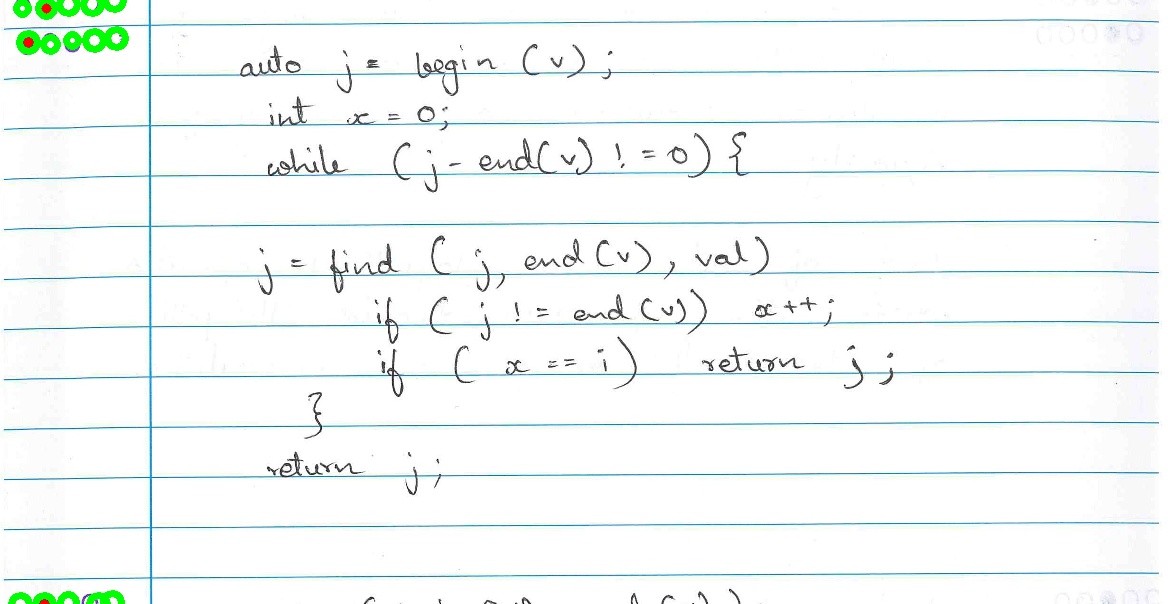 auto j = begin (v);
int x = 0;
while (j - end(v) != 0) {
j = find (j, end(v), val)
if (j != end(v)) x++;
if (x == i) return j;
}
return j;